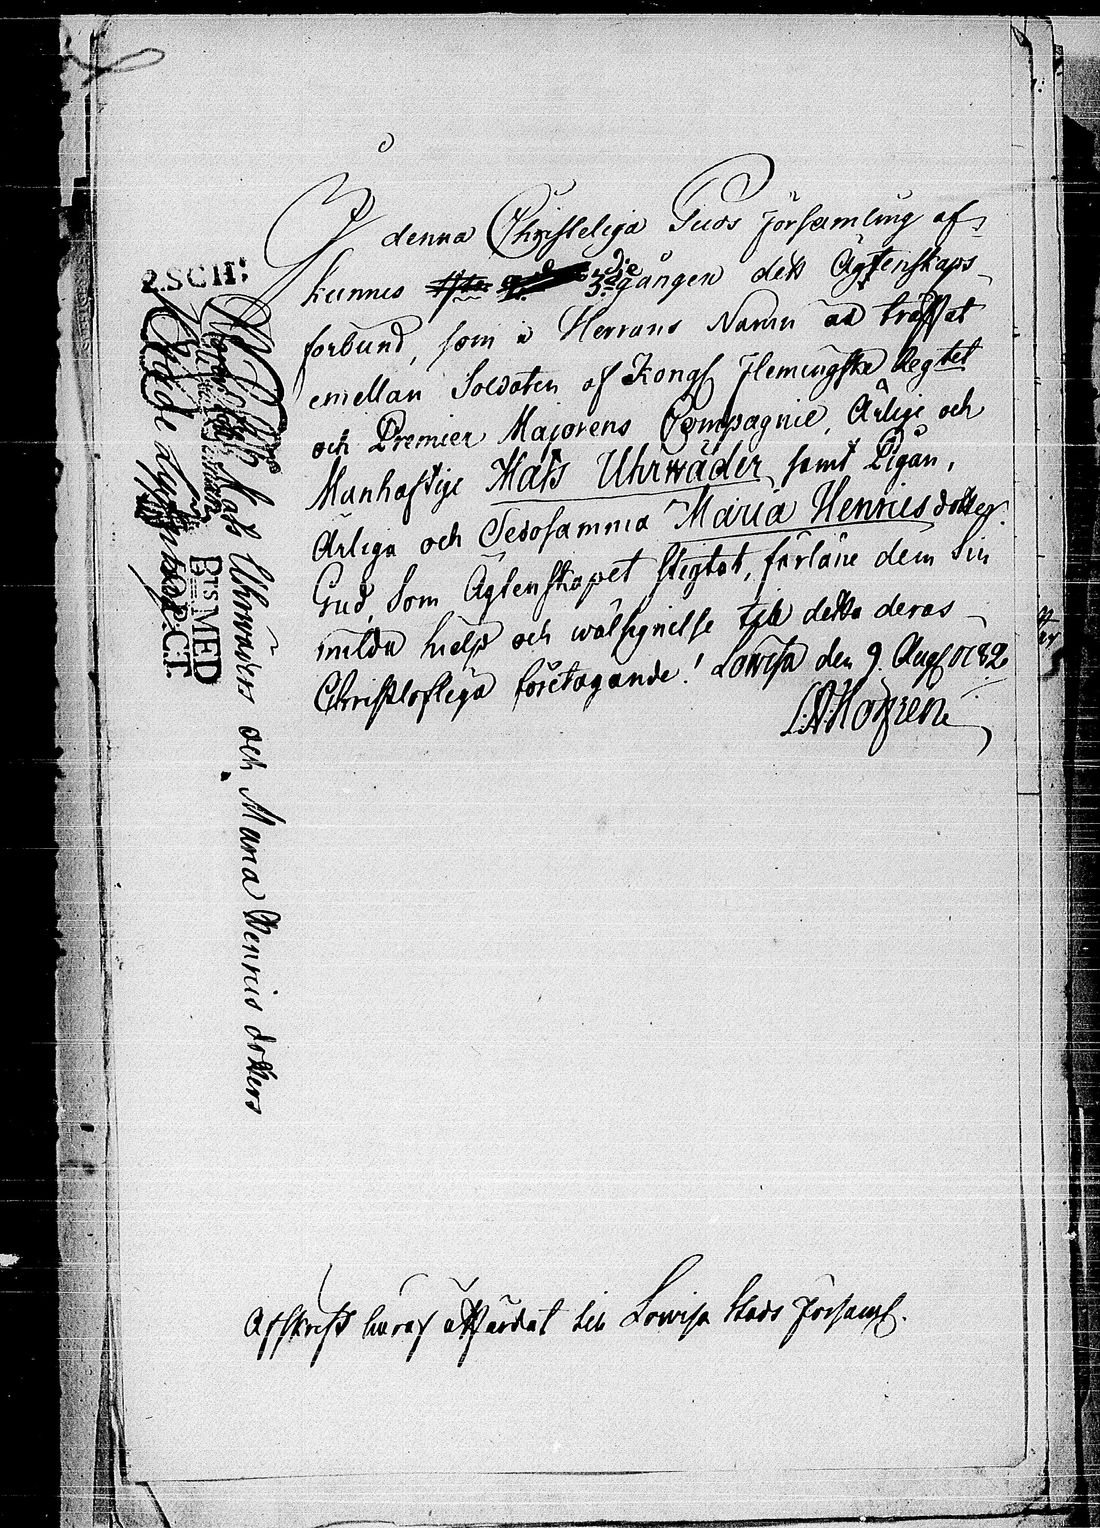 I denna Christeliga Guds Församling af-
kunnes 1sta 3die gången dett Ägtenskaps-
förbund, som i Herrans Namn är träffat
emellan Soldaten af Kongl Flemingska Regtet
och Premier Majorens Compagnie, Ärlige och
Manhaftige Mats Uhrwäder samt Pigan,
Ärliga och Gudosamma Maria Henricsdotter.
Gud, som Ägtenskapet stigtat, förläne dem Sin
milda hielp och wälsignelse till detta deras
Christloflega företagande! Lowisa den 9 Aug 1782.
2.SCH:
Mats Uhrwäders och Maria Henrics dotters
BTS MED
P.CT.
Afskrift häraf utfärdat till Lowisa Stads Församl.